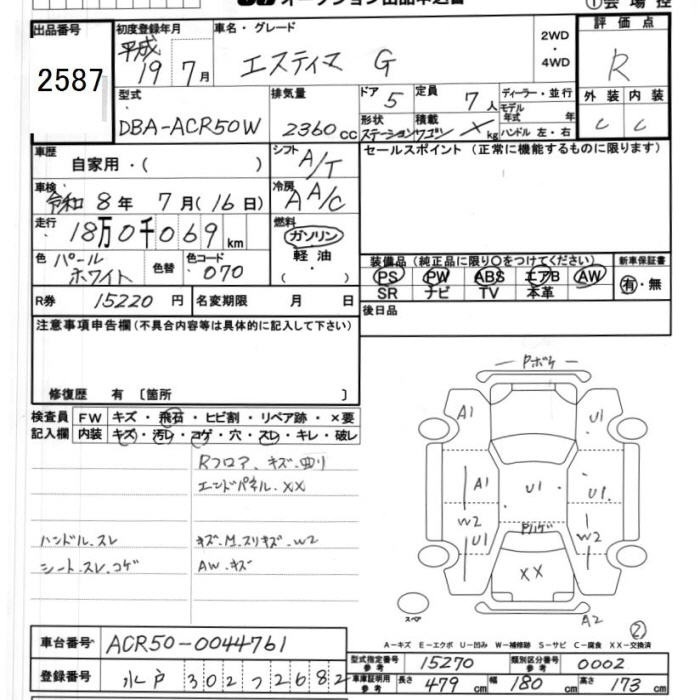 オークション出品申込書 ①会場控
出品番号 2587
初度登録年月 平成 19 7月
車名・グレード エスティマ G
2WD・4WD
評価点 R
外装 内装
C C
型式 DBA-ACR50W
排気量 2360cc
ドア 5
定員 7人
形状 ステーションワゴン
積載 × kg
ディーラー・並行
モデル年式 年
ハンドル 左・右
車歴 自家用・( )
シフト A/T
車検 令和8年 7月(16日)
冷房 A A/C
走行 18万0千069km
燃料 ガソリン 軽油 ( ・ )
色 パールホワイト 色替
色コード 070
R券 15220円
名変期限 月 日
セールスポイント(正常に機能するものに限ります)
装備品(純正品に限り○をつけてください) 新車保証書
PS PW ABS エアB AW 有・無
SR ナビ TV 本革
後日品
注意事項申告欄(不具合内容等は具体的に記入して下さい)
修復歴 有〔箇所 〕
検査員記入欄
FW キズ・飛石・ヒビ割・リペア跡・×要
内装 キズ・汚レ・コゲ・穴・スレ・キレ・破レ
Rフロア、キズ・曲り
エンドパネル・XX
ハンドル・スレ キズ・M・スリキズ・W2
シート・スレ・コゲ AW・キズ
Pボケ
A1 U1
A1 U1 U1
W2 U1 Pハゲ W2
XX
スペア A2
②
A-キズ E-エクボ U-凹み W-補修跡 S-サビ C-腐食 XX-交換済
車台番号 ACR50-0044761
登録番号 水戸 302つ2682
型式指定番号 参考 15270
類別区分番号 参考 0002
車庫証明用 参考 長さ 479cm 幅 180cm 高さ 173cm